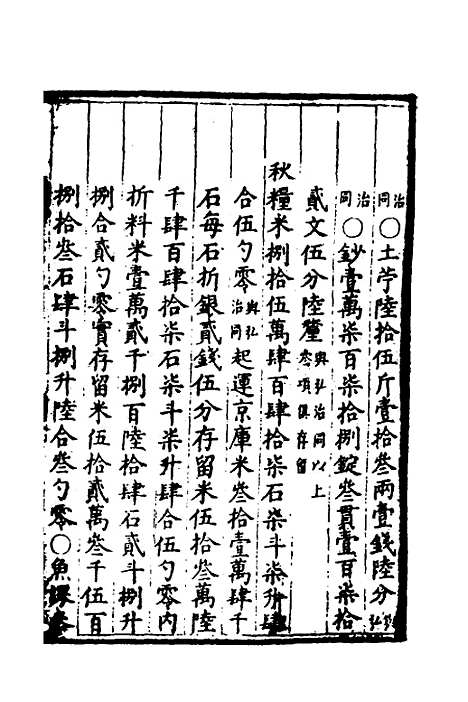 治同○土苧陸拾伍斤壹拾叁兩壹錢陸分與弘
治同○鈔壹萬柒百柒拾捌錠叁貫壹百柒拾
貳文伍分陸釐與弘治同以上叁項俱存留
秋糧米捌拾伍萬肆百肆拾柒石柒斗柒升肆
合伍勺零與弘治同起運京庫米叁拾壹萬肆千
石每石折銀貳錢伍分存留米伍拾叁萬陸
千肆百肆拾柒石柒斗柒升肆合伍勺零內
折料米壹萬貳千捌百陸拾肆石貳斗捌升
捌合貳勺零實存留米伍拾貳萬叁千伍百
捌拾叁石肆斗捌升陸合叁勺零○魚課